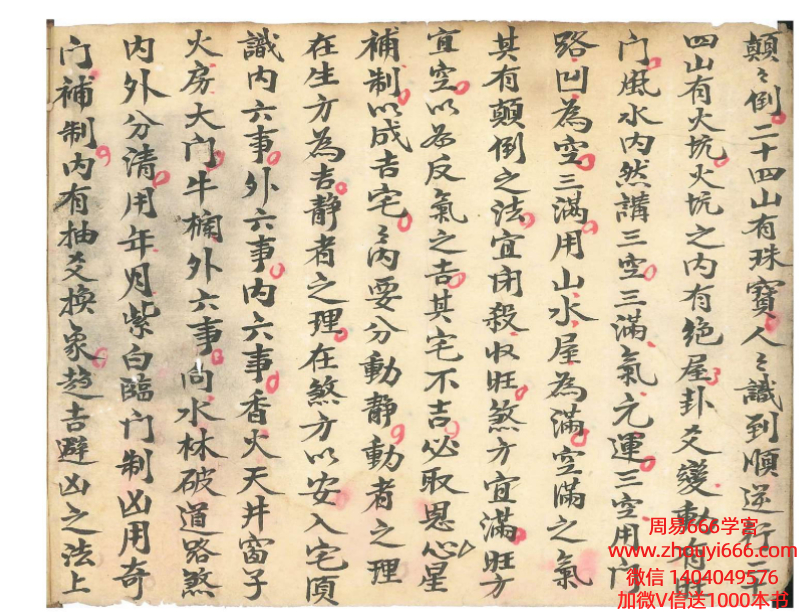 顛〻倒二十四山有珠寶人〻識到順逆行二十
四山有火坑火坑之内有绝屋卦爻變動有
门風水内然講三空三滿氣元運三空用门
路凹為空三滿用山水屋為滿空滿之氣
其有顛倒之法宜闭殺收旺煞方宜滿旺方
宜空以為反氣之吉其宅不吉必取恩星
補制以成吉宅〻内要分動靜動者之理
在生方為吉靜者之理在煞方以安入宅須
識内六事外六事内六事香火天井窗子
火房大门牛欄外六事向水林破道路煞
内外分清用年月紫白臨门制凶用奇
门補制内有抽爻換象趋吉避凶之法上
周易666学宫
www.zhouyi666.com
微信 1404049576
加微V信送1000本书